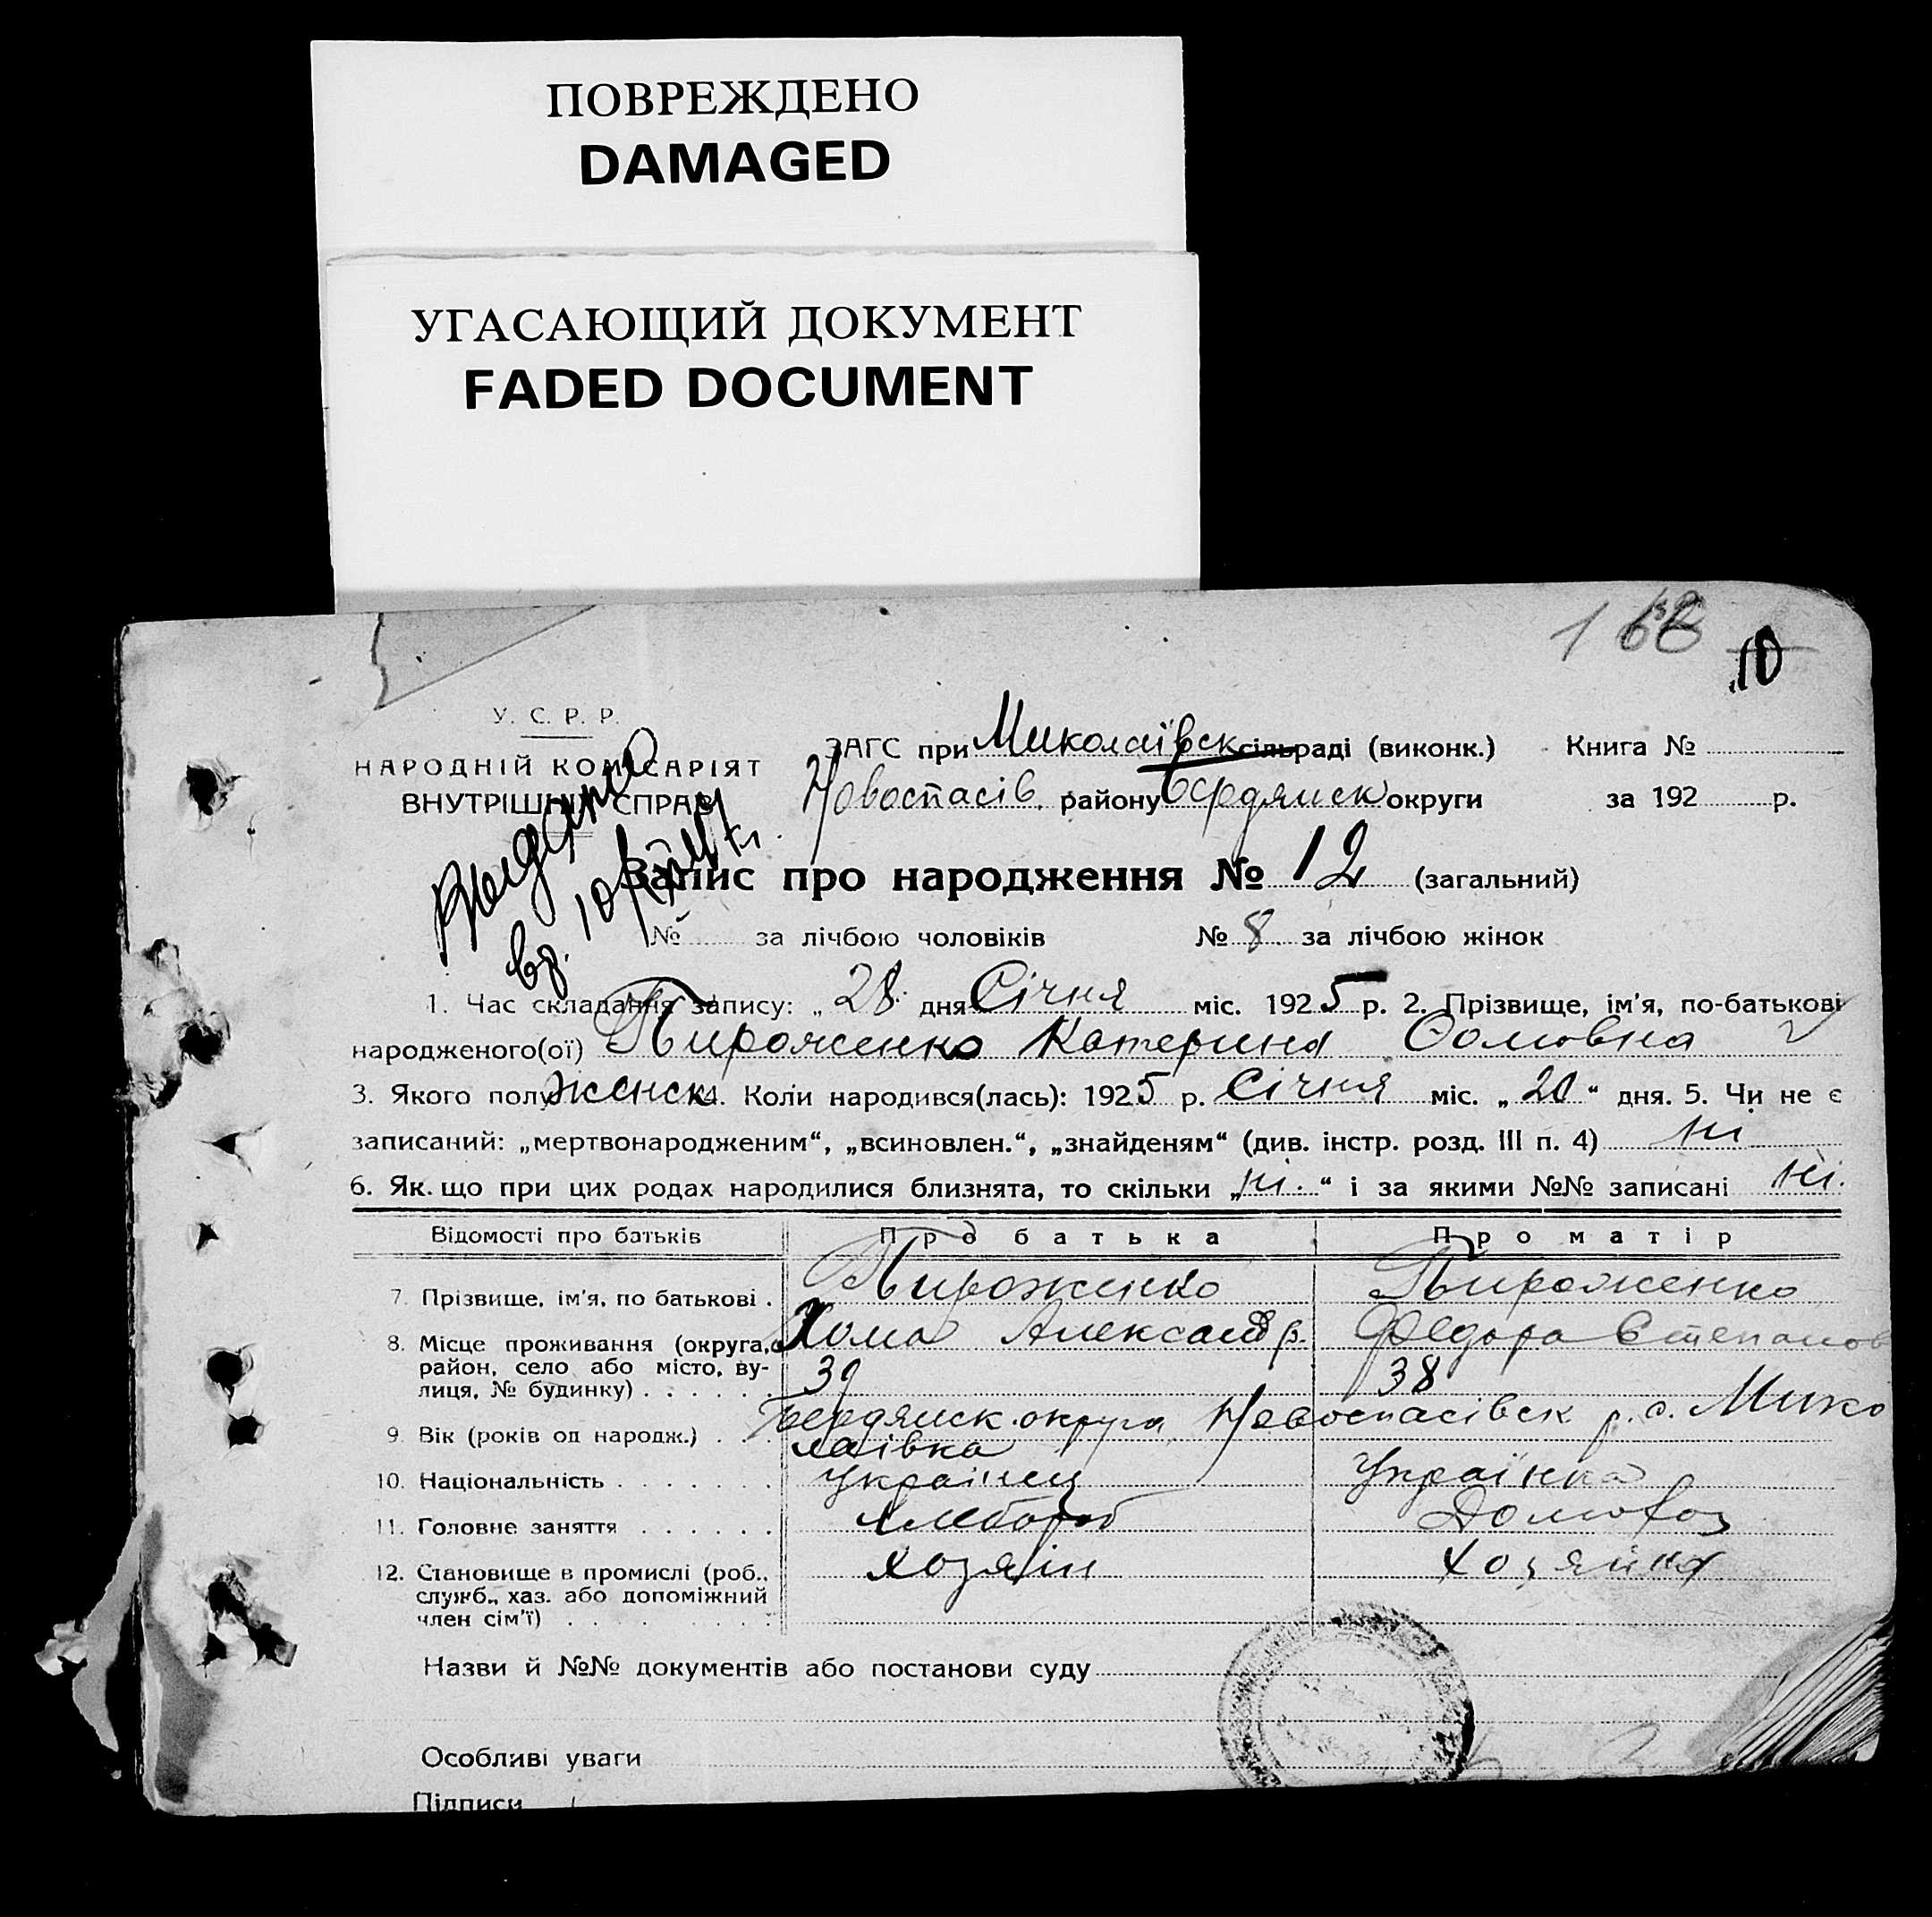 ПОВРЕЖДЕНО
DAMAGED
УГАСАЮЩИЙ ДОКУМЕНТ
FADED DOCUMENT
10
У. С. Р. Р.
НАРОДНІЙ КОМІСАРІЯТ
ВНУТРІШНІХ СПРАВ
ЗАГС при Миколаївск сільраді (виконк.) Книга №
Новоспасів. району Бердянск округи за 192 р.
Запис про народження № 12 (загальний)
№ за лічбою чоловіків № 8 за лічбою жінок
1. Час складання запису: „ 28 дня Січня міс. 1925 р. 2. Прізвище, ім'я, по-батькові
народженого(ої) Пироженко Катерина Фомовна
3. Якого полу женск 4. Коли народився(лась): 1925 р. Січня міс. „ 20 “ дня. 5. Чи не є
записаний: „мертвонародженим“, „всиновлен.“, „знайденям“ (див. інстр. розд. III п. 4) ні
6. Як. що при цих родах народилися близнята, то скільки „ ні. “ і за якими №№ записані ні.
Відомості про батьків Про батька Про матір
7. Прізвище, ім'я, по батькові . Пироженко Пироженко
Хома Александр. Федора Степанов
8. Місце проживання (округа, район, село або місто, ву-
лиця, № будинку) . . . . . . 39 38
Бердянск. округа, Новоспасівск р. с. Мико
9. Вік (років од народж.) . . . лаівка
10. Національність . . . . . . . Українец Українка
11. Головне заняття . . . . . . Хлебороб
12. Становище в промислі (роб., Хозяін Хозяйка
служб., хаз. або допоміжний
член сім'ї) . . . . . . .
Назви й №№ документів або постанови суду
Особливі уваги
Підписи